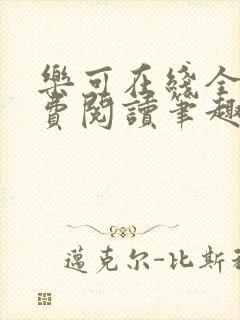 樂可在綫全
費閱讀筆趣
邁克尔-比斯